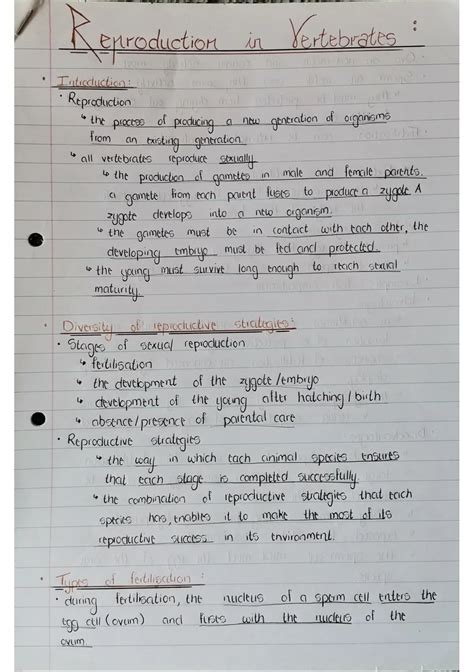 Reproduction in Vertebrates :
• Introduction :
• Reproduction
↳ the process of producing a new generation of organisms
from an existing generation
~ all vertebrates reproduce sexually
↳ the production of gametes in male and female parents.
a gamete from each parent fuses to produce a zygote A
zygote develops into a new organism.
↳ the gametes must be in contact with each other, the
developing embryo must be fed and protected.
↳ the young must survive long enough to reach sexual
maturity.
• Diversity of reproductive strategies :
• Stages of sexual reproduction
↳ fertilisation
↳ the development of the zygote / embryo
↳ development of the young after hatching / birth
↳ absence/presence of parental care
• Reproductive strategies
↳ the way in which each animal species ensures
that each stage is completed successfully.
↳ the combination of reproductive strategies that each
species has, enables it to make the most of its
reproductive success in its environment.
• Types of fertilisation :
• during fertilisation, the nucleus of a sperm cell enters the
egg cell (ovum) and fuses with the nucleus of the
ovum.